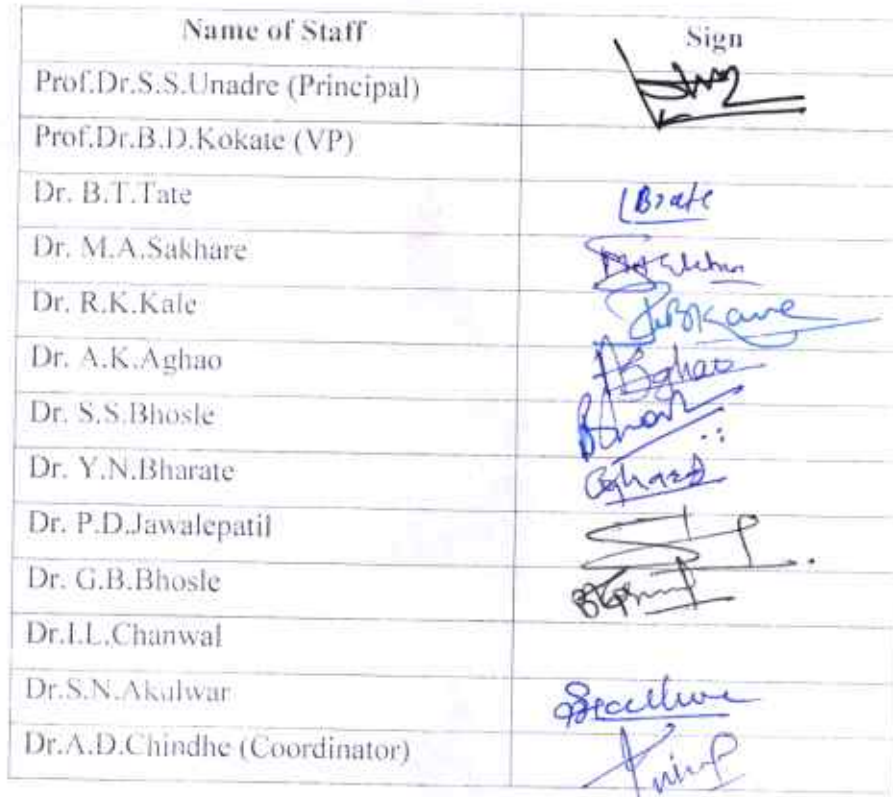 Name of Staff Sign
Prof.Dr.S.S.Unadre (Principal)
Prof.Dr.B.D.Kokate (VP)
Dr. B.T.Tate
Dr. M.A.Sakhare
Dr. R.K.Kale
Dr. A.K.Aghao
Dr. S.S.Bhosle
Dr. Y.N.Bharate
Dr. P.D.Jawalepatil
Dr. G.B.Bhosle
Dr.I.L.Chanwal
Dr.S.N.Akulwar
Dr.A.D.Chindhe (Coordinator)